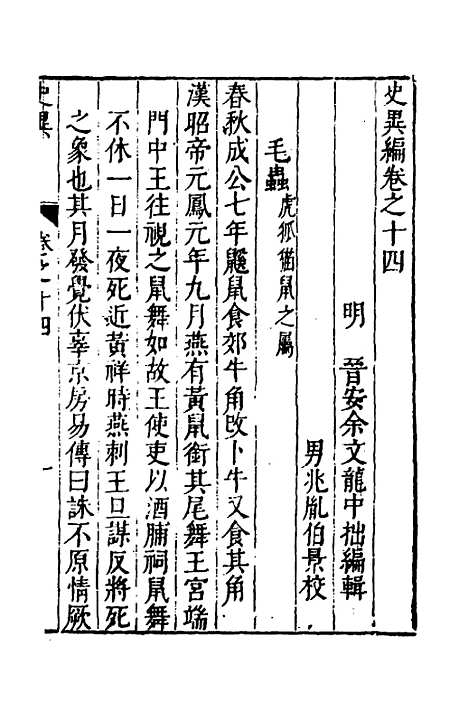 史異編卷之十四
明　晉安余文龍中拙編輯
男兆胤伯景校
毛蟲虎狐猫鼠之屬
春秋成公七年鼷鼠食郊牛角改卜牛又食其角
漢昭帝元鳳元年九月燕有黃鼠銜其尾舞王宮端
門中王往視之鼠舞如故王使吏以酒脯祠鼠舞
不休一日一夜死近黃祥時燕剌王旦謀反將死
之象也其月發覺伏辜京房易傳曰誅不原情厥
史異
卷之十四
一